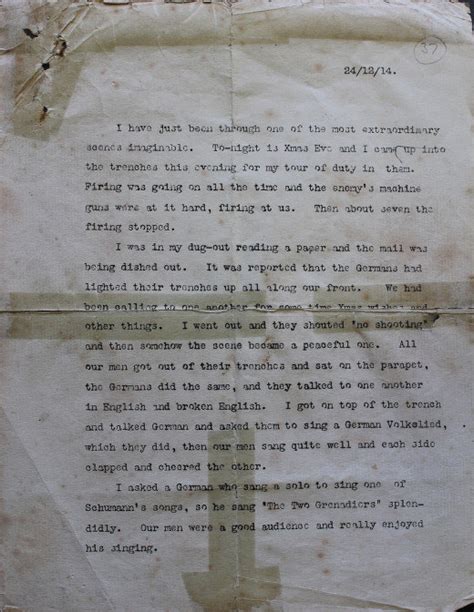 37
24/12/14.
I have just been through one of the most extraordinary
scenes imaginable. To-night is Xmas Eve and I came up into
the trenches this evening for my tour of duty in them.
Firing was going on all the time and the enemy's machine
guns were at it hard, firing at us. Then about seven the
firing stopped.
I was in my dug-out reading a paper and the mail was
being dished out. It was reported that the Germans had
lighted their trenches up all along our front. We had
been calling to one another for some time Xmas wishes and
other things. I went out and they shouted "no shooting"
and then somehow the scene became a peaceful one. All
our men got out of their trenches and sat on the parapet,
the Germans did the same, and they talked to one another
in English and broken English. I got on top of the trench
and talked German and asked them to sing a German Volkslied,
which they did, then our men sang quite well and each side
clapped and cheered the other.
I asked a German who sang a solo to sing one of
Schumann's songs, so he sang "The Two Grenadiers" splen-
didly. Our men were a good audience and really enjoyed
his singing.